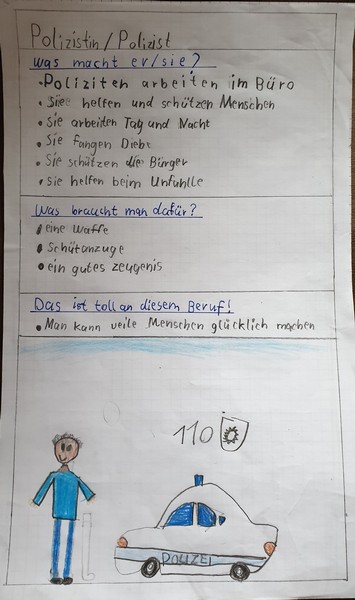 Polizistin/Polizist
was macht er/sie?
• Poliziten arbeiten im Büro
• Siee helfen und schützen Menschen
• Sie arbeiten Tag und Nacht
• Sie fangen Diebe
• Sie schützen die Bürger
• Sie helfen beim Unfahlle
Was braucht man dafür?
• eine Waffe
• Schützanzuge
• ein gutes zeugenis
Das ist toll an diesem Beruf!
• Man kann veile Menschen glücklich machen
110
POLIZEI